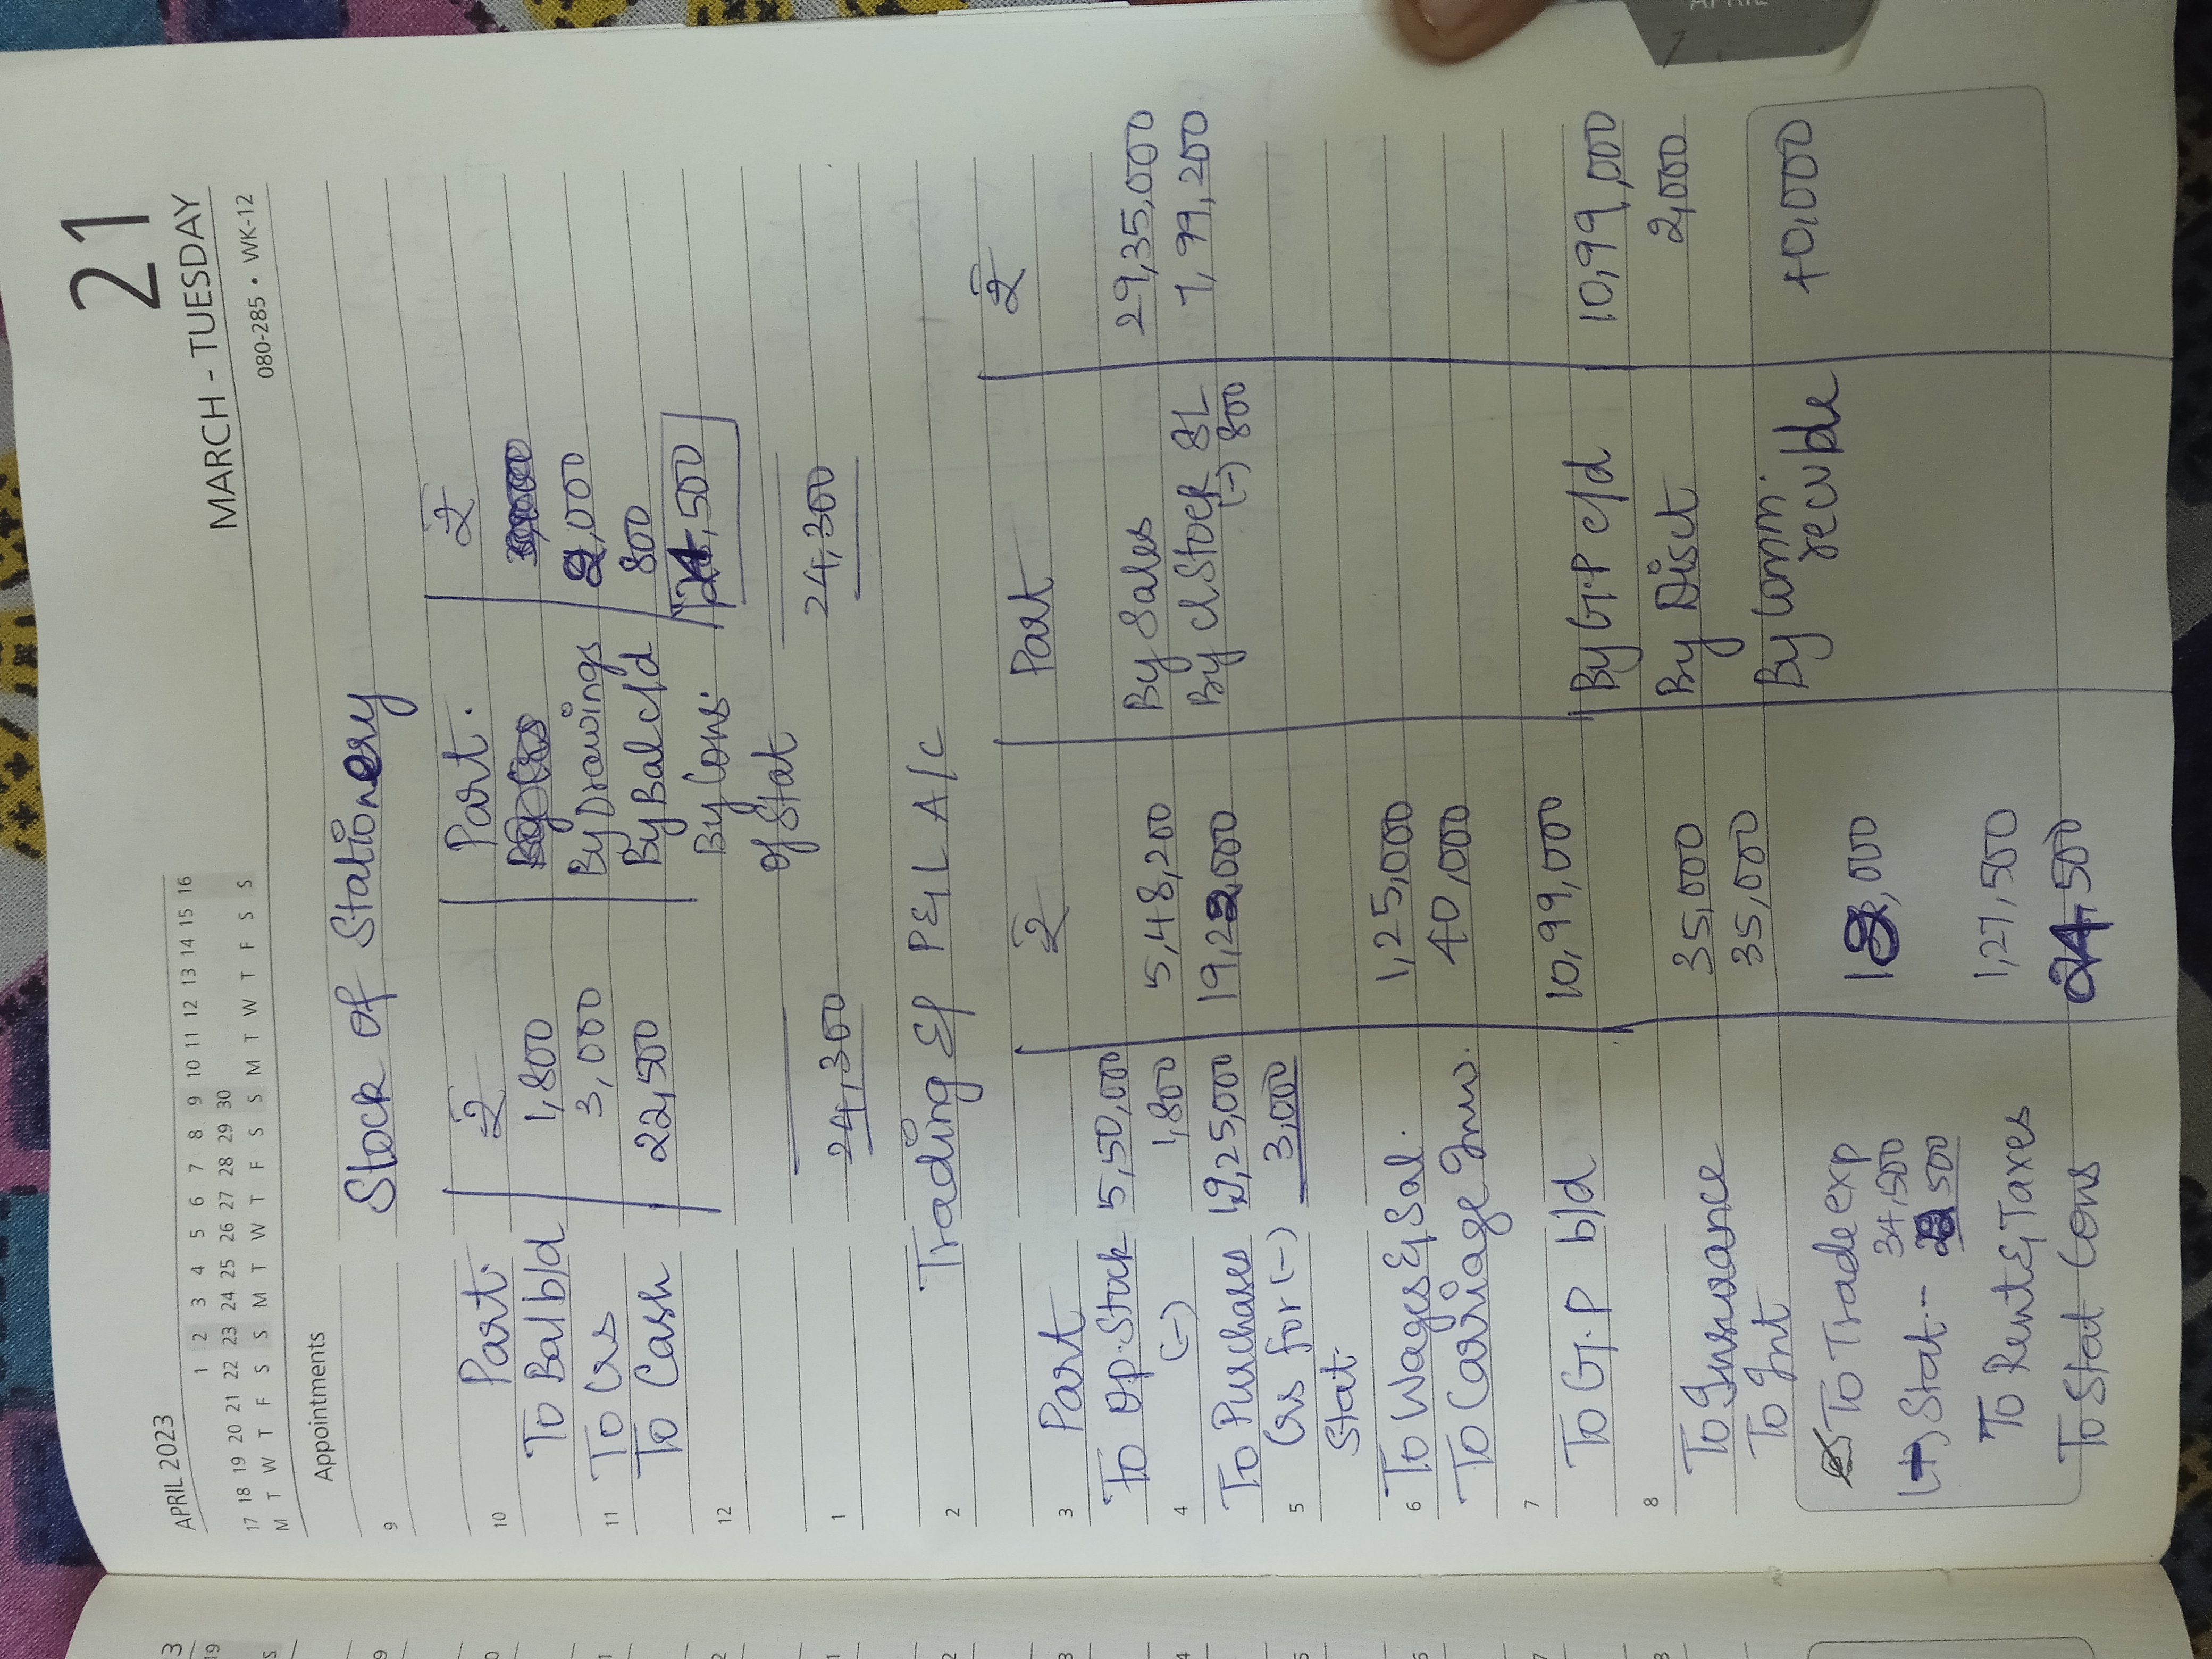 APRIL 2023
1 2 3 4 5 6 7 8 9 10 11 12 13 14 15 16
17 18 19 20 21 22 23 24 25 26 27 28 29 30
M T W T F S S M T W T F S S M T W T F S S
21
MARCH - TUESDAY
080-285 • WK-12
Appointments
9 Stock of Stationery
10 Part. ₹ Part. ₹
To Bal b/d 1,800
11 To Crs 3,000 By Drawings 2,000
To Cash 22,500 By Bal c/d 800
12 By Cons. 21,500
of Stat
1 24,300 24,300
2 Trading & P&L A/c
3 Part ₹ Part ₹
To Op. Stock 5,50,000
4 (-) 1,800 5,48,200 By Sales 29,35,000
To Purchases 19,25,000 19,22,000 By Cl Stock 8L 7,99,200
5 Crs for (-) 3,000 (-) 800
Stat.
6 To Wages & Sal. 1,25,000
To Carriage Inw. 40,000
7
To G.P b/d 10,99,000 By G.P c/d 10,99,000
8 To Insurance 35,000 By Disct 2,000
To Int 35,000
By Comm. 40,000
To Trade exp 12,000 recvble
34,500
Stat.- 22,500
To Rent & Taxes 1,27,500
To Stat Cons 21,500
APRIL